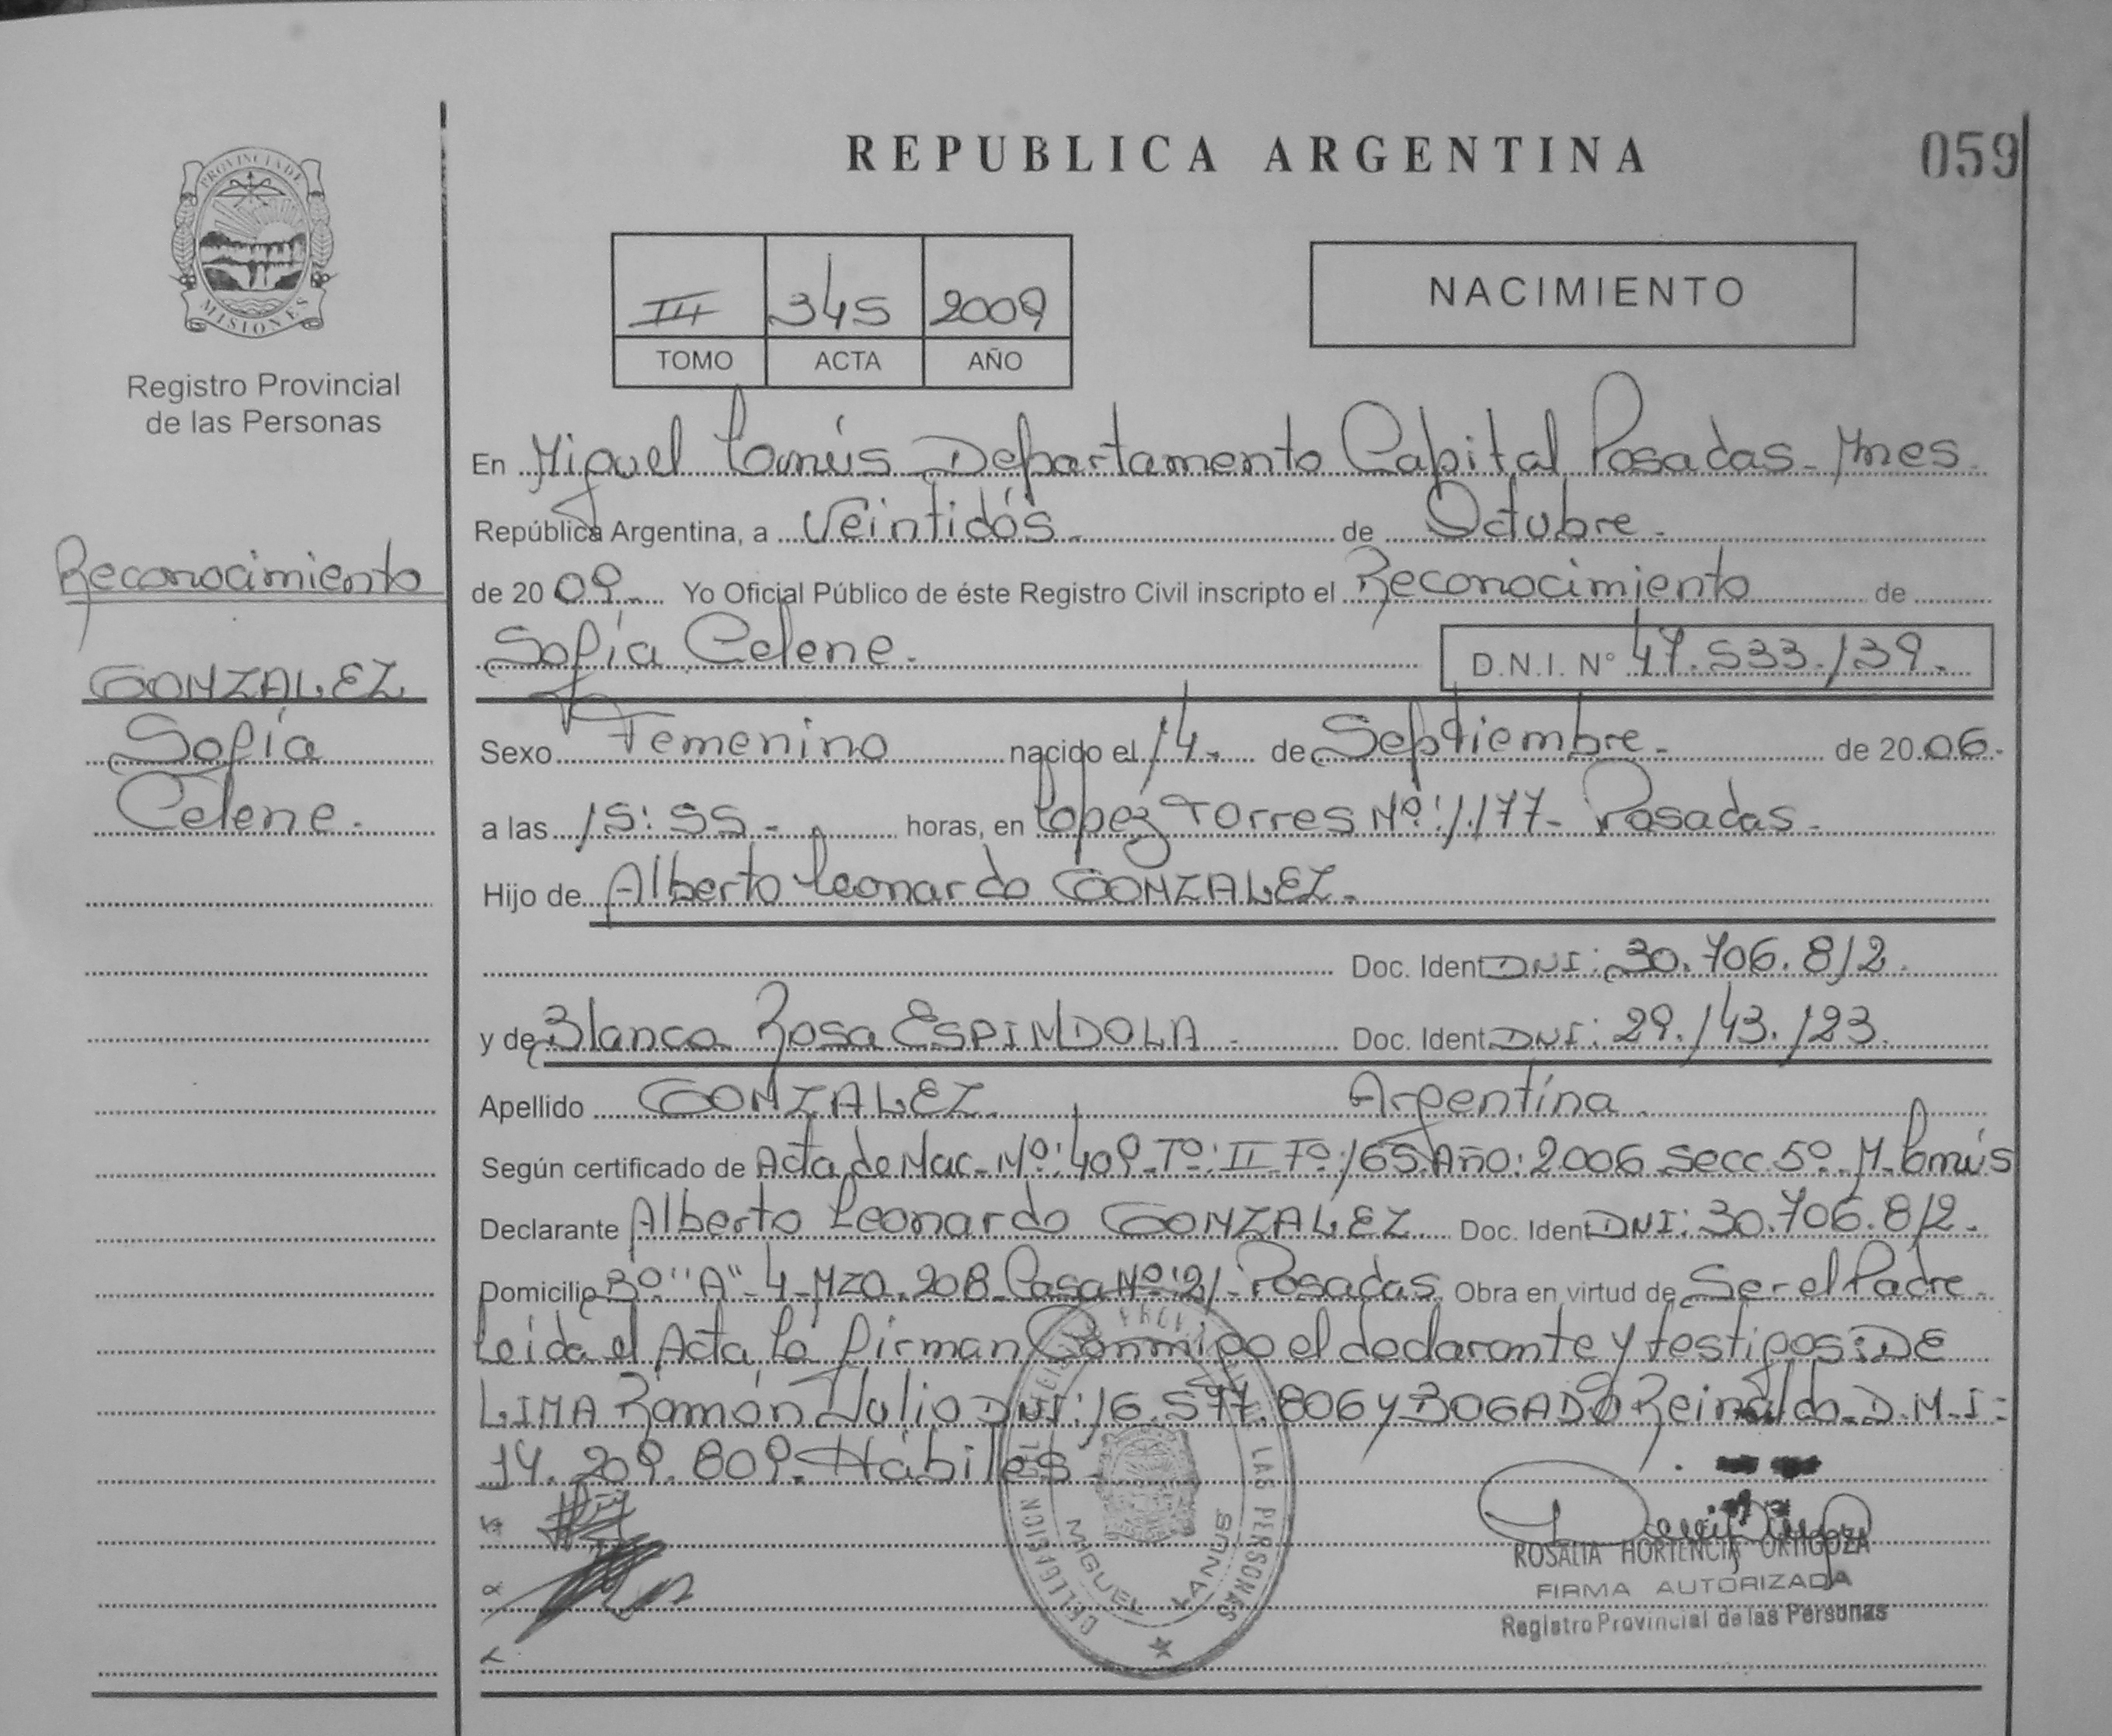 REPUBLICA ARGENTINA
059
PROVINCIA DE
MISIONES
Registro Provincial
de las Personas
III 345 2009
TOMO ACTA AÑO
NACIMIENTO
En Miguel Lanús Departamento Capital Posadas - Mnes.
República Argentina, a Veintidós - de Octubre -
de 20 09 - Yo Oficial Público de éste Registro Civil inscripto el Reconocimiento de
Sofía Celene. D.N.I. N° 47.533.139.-
Reconocimiento
GONZALEZ
Sofía
Celene.
Sexo Femenino nacido el 14. de Septiembre - de 20.06.
a las 15:55 - horas, en López Torres Nº: 1.177 - Posadas -
Hijo de Alberto Leonardo GONZALEZ -
Doc. Ident DNI: 30.706.812.
y de Blanca Rosa ESPINDOLA - Doc. Ident DNI: 29.143.123.
Apellido GONZALEZ. Argentina.
Según certificado de Acta de Nac. Nº: 409 - Tº: II - Fº: 165 Año: 2006 Secc 5º - M. Lanús
Declarante Alberto Leonardo GONZALEZ. Doc. Ident DNI: 30.706.812.
Domicilio Bº "A" - 4 - MZA. 208 - Casa Nº: 21 - Posadas. Obra en virtud de Ser el Padre -
Leída el Acta la firman Conmigo el declarante y testigos: DE
LIMA Ramón Julio DNI: 16.577.806 y BOGADO Reinaldo - D.N.I:
14.209.809. Hábiles -
DELEGACION
MIGUEL LANUS
LAS PERSONAS
ROSALIA HORTENCIA ORTIGOZA
FIRMA AUTORIZADA
Registro Provincial de las Personas